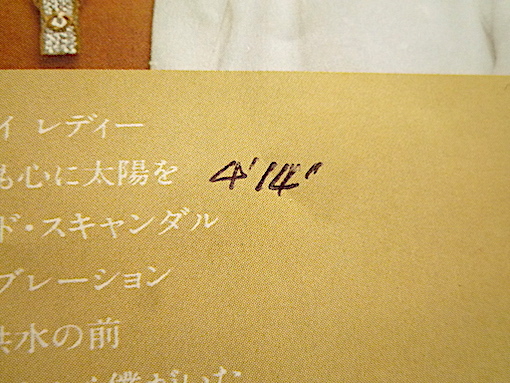 イ レディー
も心に太陽を 4'14"
ド・スキャンダル
ブレーション
洪水の前
僕がいた